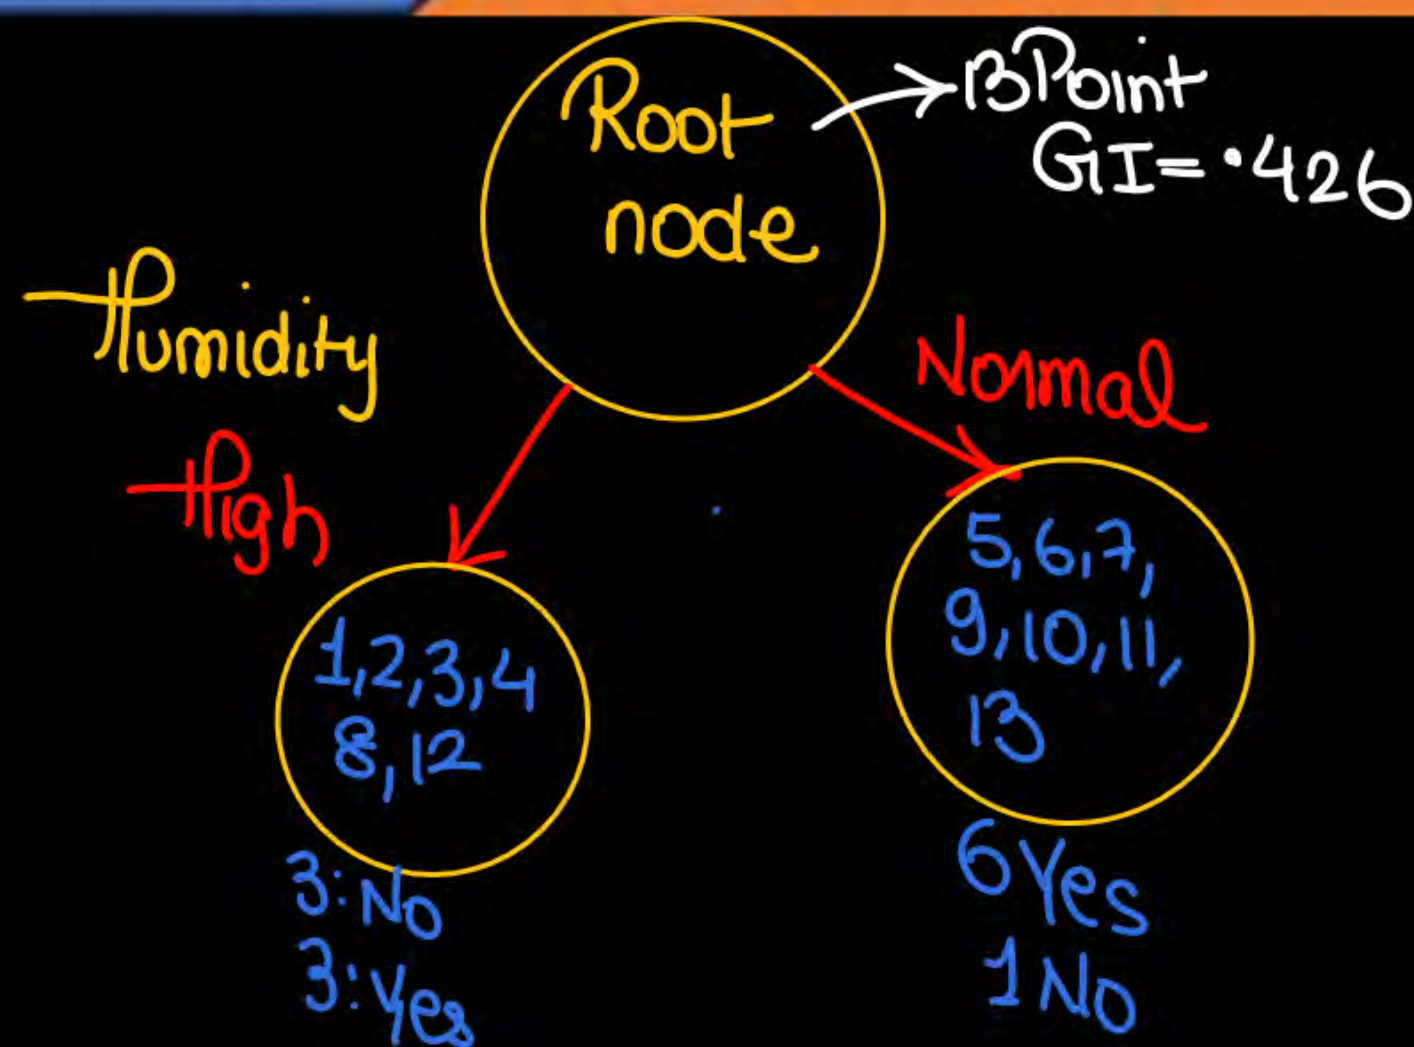 Root
node
13Point
GI= .426
Humidity
High
Normal
1,2,3,4
8,12
3:No
3:Yes
5,6,7,
9,10,11,
13
6Yes
1No